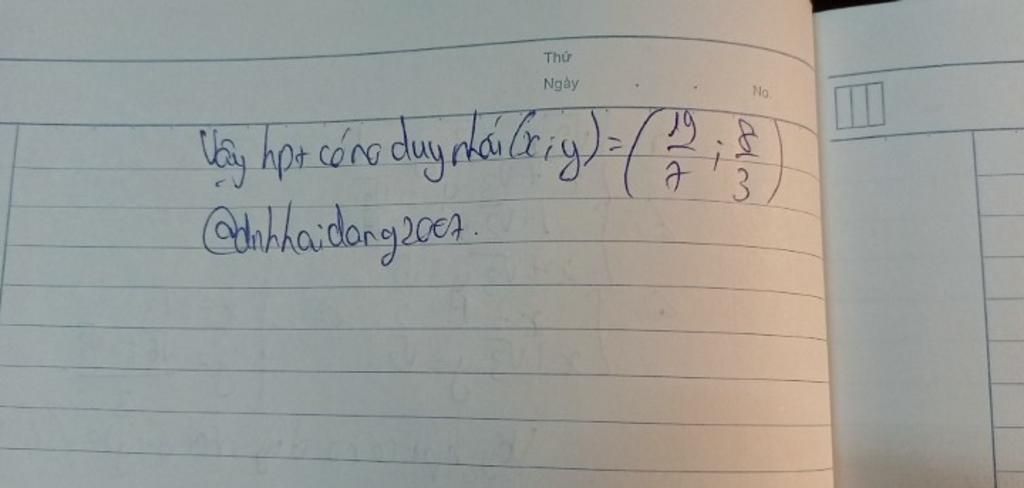 Thứ
Ngày . .
No.
Vậy hpt có no duy nhất (x;y) = (19/7 ; 8/3)
@dnhhaidang2007.